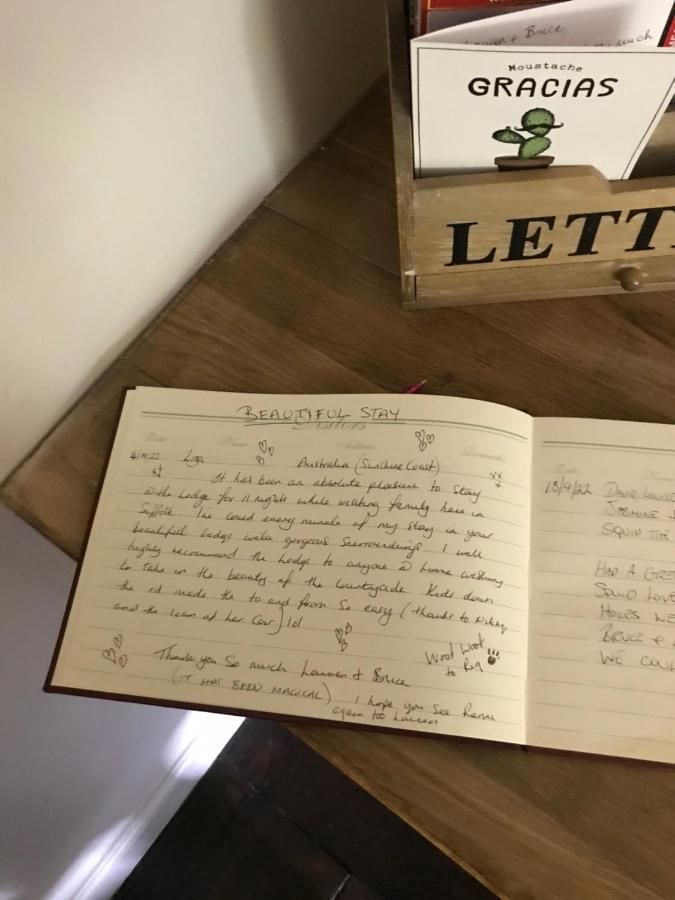 Lauren & Bruce,
much
Moustache
GRACIAS
LETT
BEAUTIFUL STAY
Visitors
Date Name Address Remarks
4/11/22 Liza Australia (Sunshine Coast)
It has been an absolute pleasure to stay
@ the Lodge for 11 nights while visiting family here in
Suffolk I've loved every minute of my stay in your
beautiful Lodge with gorgeous surroundings I will
highly recommend the Lodge to anyone @ home wishing
to take in the beauty of the Countryside Kids down
the rd made the to and from so easy (thanks to Nikky
and the loan of her Car) lol
Thank you so much Lauren & Bruce
(IT HAS BEEN MAGICAL) I hope you see
again too Lauren
Woof Woof
to
Date Name
18/9/22 DAVID
JASMINE
SQUID THE
HAD A GRE
SQUID LOVE
HOLES WE
BRUCE &
WE COUL